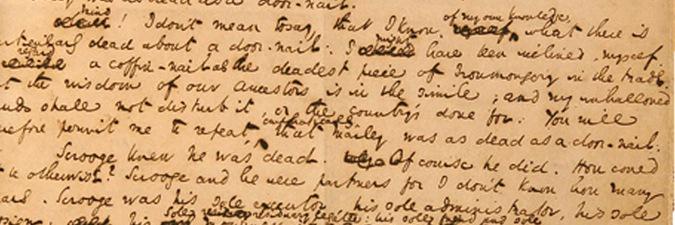 was as dead as a door-nail.
Mind! I don't mean to say, that I know, of my own knowledge, what there is
particularly dead about a door-nail. I might have been inclined, myself,
to regard a coffin-nail as the deadest piece of Ironmongery in the trade.
But the wisdom of our Ancestors is in the simile; and my unhallowed
hands shall not disturb it, or the country's done for. You will
therefore permit me to repeat, emphatically, that Marley was as dead as a door-nail.
Scrooge knew he was dead. Of course he did. How could
it be otherwise? Scrooge and he were partners for I don't know how many
years. Scrooge was his sole executor, his sole administrator, his sole
his sole friend and sole